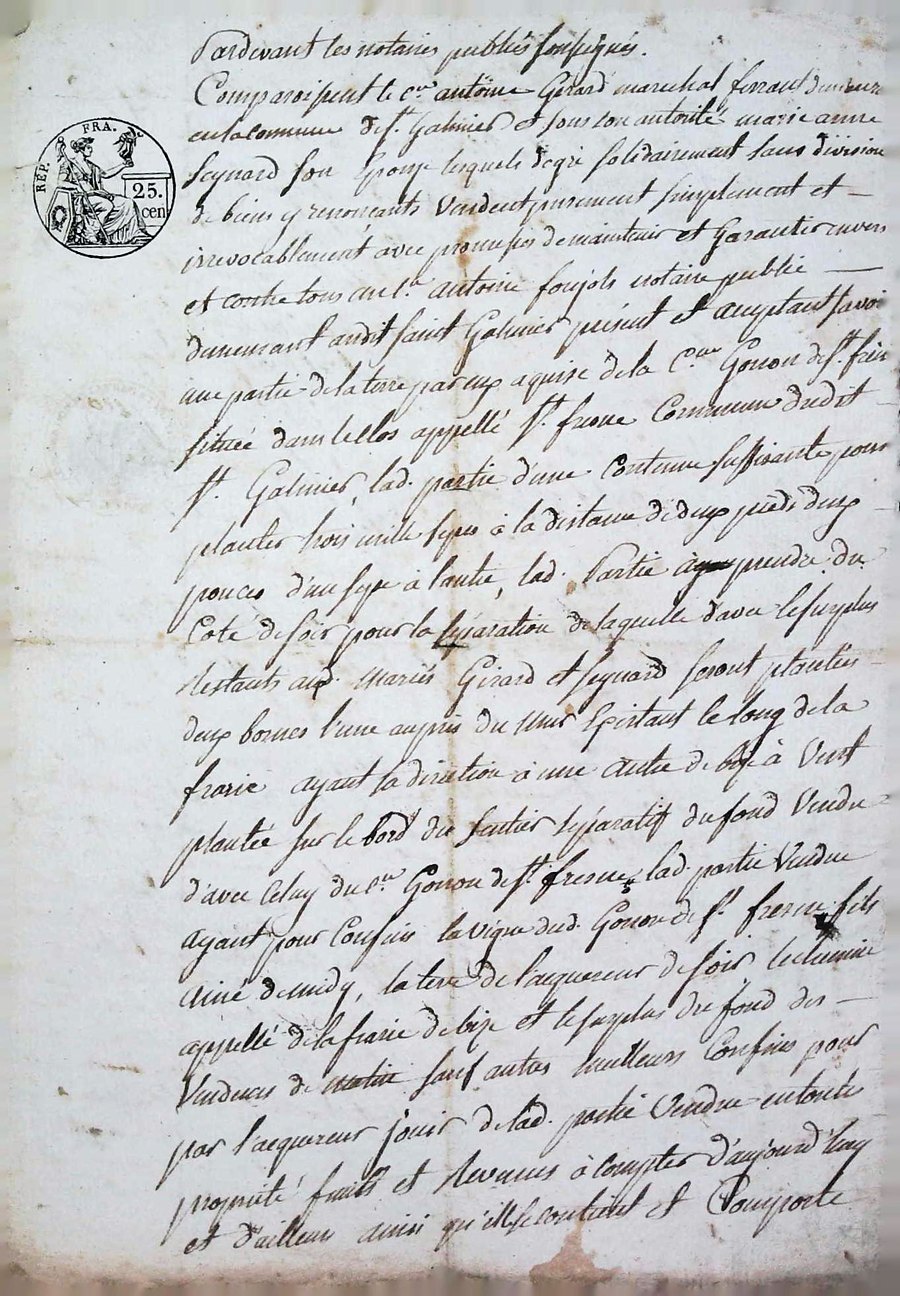 Pardevant les notaires publics soussignés.
Comparoissent le c.en antoine Girard marechal ferrant demeurt
en la commune de s.t Galmier et sous son autorité marie anne
Seynard son Epouse lesquels de gré solidairement sans division
de biens y renonceants Vendent purement simplement et —
irrevocablement avec promesses de maintenir et Garantir envers
et contre tous au c.en antoine foujols notaire public —
demeurant audit saint Galmier présent et acceptant savoir
une partie de la terre par eux aquise de la C.ne Gonon de s.t frein
située dans le clos appellé s.t fresne Commune dudit
s.t Galmier, lad. partie d'une Contenue suffisante pour
planter trois mille seps à la distance de deux pieds deux
pouces d'un sep à l'autre, lad. Partie à prendre du
Coté de soir pour la séparation de laquelle d'avec le surplus
restants aud. Mariés Girard et seynard seront plantées
deux bornes l'une auprès du Mur Existant le long de la
frarie ayant la direction à une autre de bise à Vent
plantée sur le bord du sentier séparatif du fond Vendu
d'avec Celuy du c.en Gonon de s.t fresne, lad. partie Vendue
ayant pour Confins la vigne dud. Gonon de s.t fresne fils
ainé de midy, la terre de l'acquereur de soir, le chemin
appellé de la frarie de bise et le surplus du fond des —
Vendeurs de matin sauf autres meilleurs Confins pour
par l'acquereur jouir de lad. partie Vendue en toute
propriété fruits et Revenus à compter d'aujourd'huy
et d'ailleurs ainsi qu'elle se contient et Comporte
REP. FRA.
25.
cen